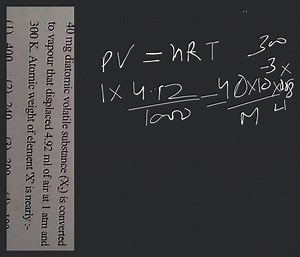 40 mg diatomic volatile substance (X₂) is converted
to vapour that displaced 4.92 ml of air at 1 atm and
300 K. Atomic weight of element 'X' is nearly :-
(1) 400 (2) 240 (3) 200
PV = nRT
300
1 × 4.92 / 1000 = 40 × 10⁻³ × / M